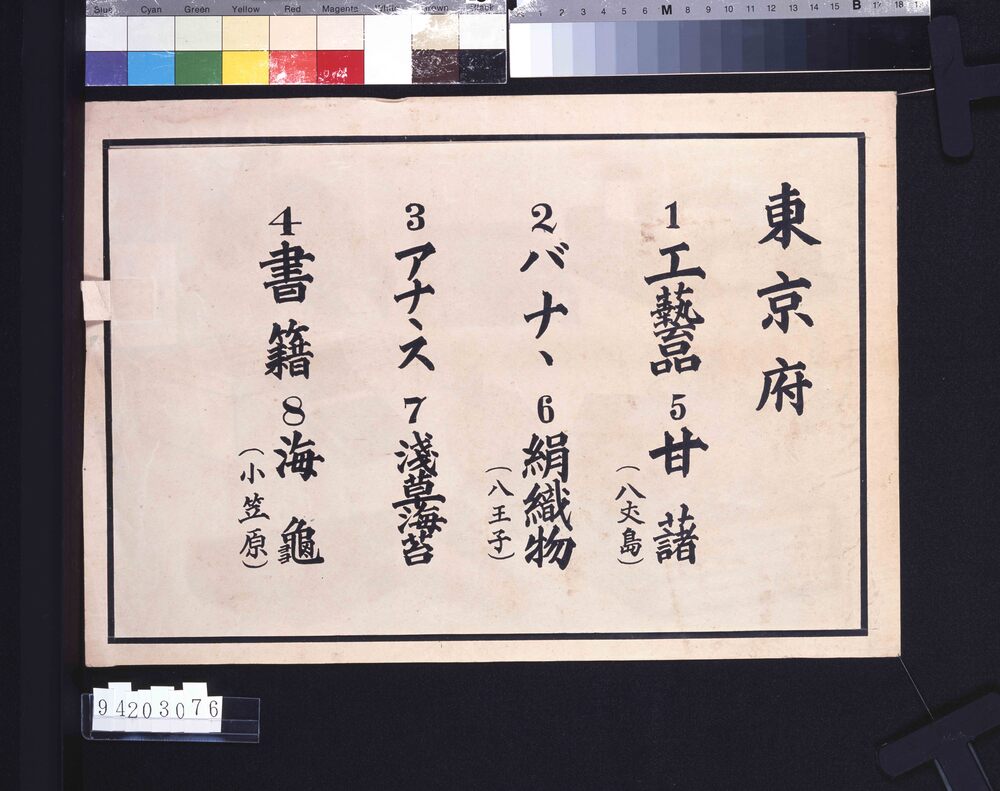 Blue Cyan Green Yellow Red Magenta White Brown Black
1 2 3 4 5 6 M 8 9 10 11 12 13 14 15 B 17 18 19
東京府
1 工藝品
5 甘藷
(八丈島)
2 バナヽ
6 絹織物
(八王子)
3 アナヽス
7 淺草海苔
4 書籍
8 海龜
(小笠原)
94203076